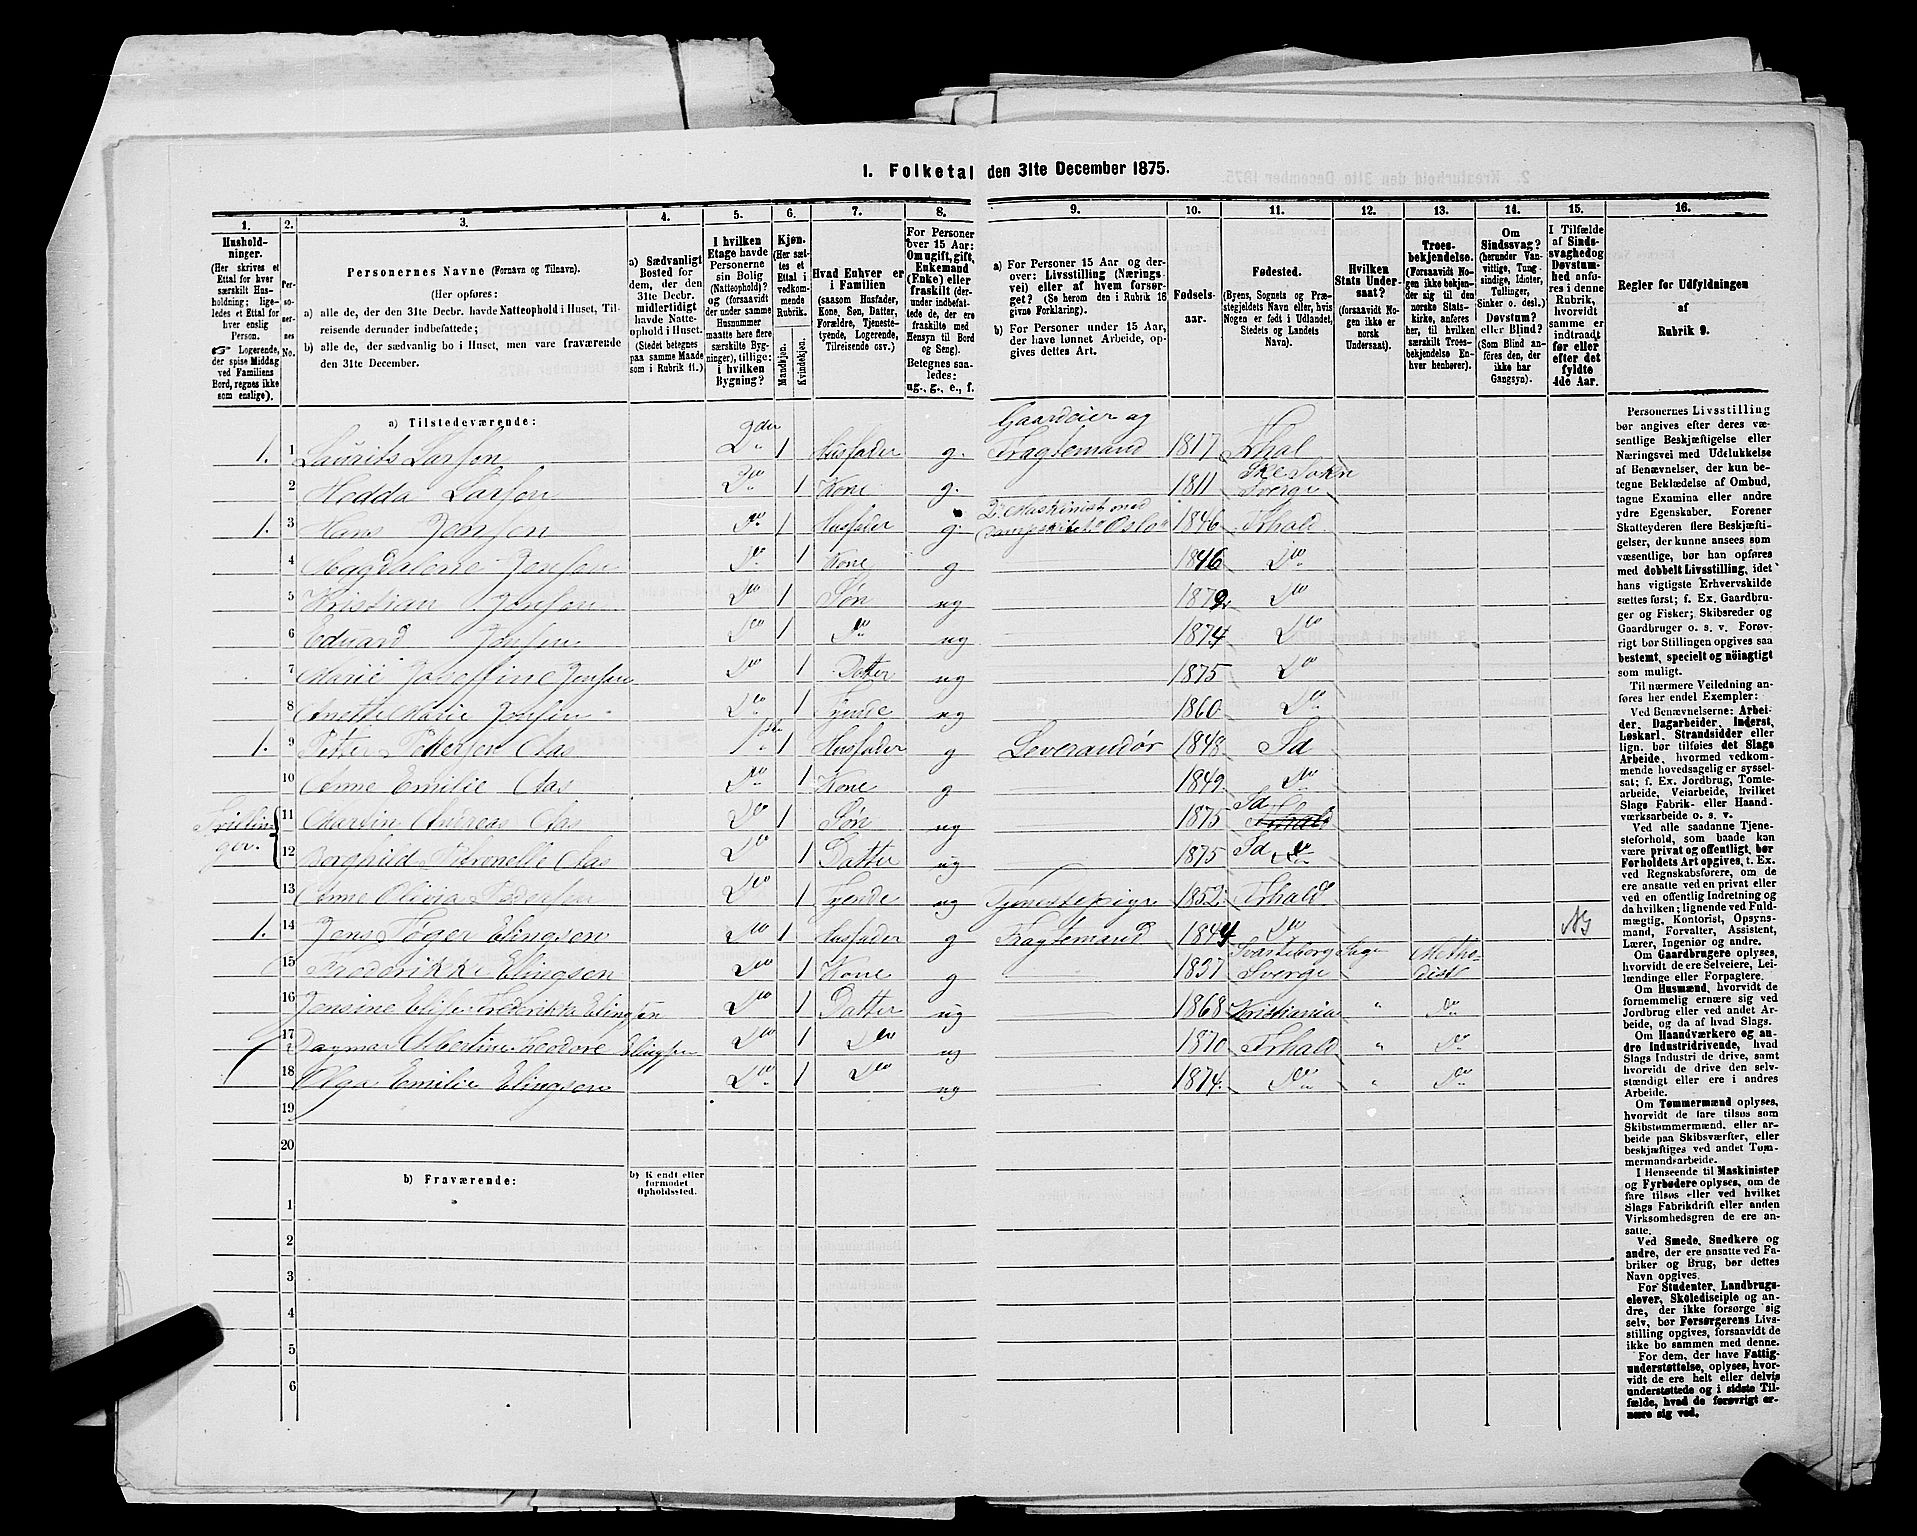 1. Folketal den 31te December 1875.
1. 2. 3. 4. 5. 6. 7. 8. 9. 10. 11. 12. 13. 14. 15. 16.
Husholdninger.
(Her skrives et Ettal for hver særskilt Husholdning; ligeledes et Ettal for hver enslig Person.
☞ Logerende, der spise Middag ved Familiens Bord, regnes ikke som enslige).
Personernes No.
Personernes Navne (Fornavn og Tilnavn).
(Her opføres:
a) alle de, der den 31te Decbr. havde Natteophold i Huset, Tilreisende derunder indbefattede;
b) alle de, der sædvanlig bo i Huset, men vare fraværende den 31te December.
a) Sædvanligt Bosted for dem, der den 31te Decbr. midlertidigt havde Natteophold i Huset. (Stedet betegnes paa samme Maade som i Rubrik 11.)
I hvilken Etage havde Personerne sin Bolig (Natteophold)? og (forsaavidt der under samme Husnummer maatte høre flere særskilte Bygninger), tillige: i hvilken Bygning?
Kjøn. (Her sættes et Ettal i vedkommende Rubrik.
Mandkjøn. Kvindekjøn.
Hvad Enhver er i Familien (saasom Husfader, Kone, Søn, Datter, Forældre, Tjenestetyende, Logerende, Tilreisende osv.)
For Personer over 15 Aar: Om ugift, gift, Enkemand (Enke) eller fraskilt (derunder indbefattede de, der ere fraskilte med Hensyn til Bord og Seng).
Betegnes saaledes: ug., g., e., f.
a) For Personer 15 Aar og derover: Livsstilling (Næringsvei) eller af hvem forsørget? (Se herom den i Rubrik 16 givne Forklaring).
b) For Personer under 15 Aar, der have lønnet Arbeide, opgives dettes Art.
Fødselsaar.
Fødested.
(Byens, Sognets og Præstegjeldets Navn eller, hvis Nogen er født i Udlandet, Stedets og Landets Navn).
Hvilken Stats Undersaat? (forsaavidt Nogen ikke er norsk Undersaat).
Troesbekjendelse. (Forsaavidt Nogen ikke bekjender sig til den norske Statskirke, anføres her, til hvilken særskilt Troesbekjendelse Enhver henhører).
Om Sindssvag? (herunder Vanvittige, Tungsindige, Idioter, Tullinger, Sinker o. desl.) Døvstum? eller Blind? (Som Blind anføres den, der ikke har Gangsyn).
I Tilfælde af Sindssvaghed og Døvstumhed anføres i denne Rubrik, hvorvidt samme er indtraadt før eller efter det fyldte 4de Aar.
Regler for Udfyldningen af Rubrik 9.
a) Tilstedeværende:
1. 1 Laurits Larsen 2den 1 Husfader g. Gaardeier og Fragtemand 1817 Frhal
2 Hedda Larsen Do 1 Kone g. 1811 Sverge
1. 3 Hans Jensen Do 1 Husfader g. 2' Maskinist med Dampskibet "Oslo" 1846 Frhald
4 Magdalene Jensen Do 1 Kone g 1846 Do
5 Kristian Jensen Do 1 Søn ug 1872 Do
6 Eduard Jensen Do 1 Do ug 1874 Do
7 Marie Josefine Jensen Do 1 Datter ug 1875 Do
8 Anette Marie Jensen Do 1 Tyende ug 1860 Do
1. 9 Petter Pettersen Aas 1ste 1 Husfader g Leverandør 1848 Id
10 Anne Emilie Aas Do 1 Kone g 1849 Do
Tvillinger. 11 Martin Andreas Aas Do 1 Søn ug 1875 Id Frhald
12 Borghild Petronelle Aas Do 1 Datter ug 1875 Id Do
13 Anne Olivia Pedersen Do 1 Tyende ug Tjenestepige 1852 Frhald
1. 14 Jens Tøger Elingsen Do 1 Husfader g Fragtemand 1844 Do
15 Frederikke Elingsen Do 1 Kone g 1837 Svarteborg Sverge Methodist
16 Jensine Elise Fredrikke Elingsen Do 1 Datter ug 1868 Kristiania " Do
17 Dagmar Albertine Theodore Elingsen Do 1 Do ug 1870 Frhald " Do
18 Olga Emilie Elingsen Do 1 Do ug 1874 Do " Do
19
20
b) Fraværende:
b) Kjendt eller formodet Opholdssted.
1
2
3
4
5
6
Personernes Livsstilling bør angives efter deres væsentlige Beskjæftigelse eller Næringsvei med Udelukkelse af Benævnelser, der kun betegne Beklædelse af Ombud, tagne Examina eller andre ydre Egenskaber. Forener Skatteyderen flere Beskjæftigelser, der kunne ansees som væsentlige, bør han opføres med dobbelt Livsstilling, idet hans vigtigste Erhvervskilde sættes først; f. Ex. Gaardbruger og Fisker; Skibsreder og Gaardbruger o. s. v. Forøvrigt bør Stillingen opgives saa bestemt, specielt og nøiagtigt som muligt.
Til nærmere Veiledning anføres her endel Exempler:
Ved Benævnelserne: Arbeider, Dagarbeider, Inderst, Løskarl, Strandsidder eller lign. bør tilføies det Slags Arbeide, hvormed vedkommende hovedsagelig er sysselsat; f. Ex. Jordbrug, Tomtearbeide, Veiarbeide, hvilket Slags Fabrik- eller Haandværksarbeide o. s. v.
Ved alle saadanne Tjenesteforhold, som baade kan være privat og offentligt, bør Forholdets Art opgives, t. Ex. ved Regnskabsførere, om de ere ansatte ved en privat eller ved en offentlig Indretning og da hvilken; lignende ved Fuldmægtig, Kontorist, Opsynsmand, Forvalter, Assistent, Lærer, Ingeniør og andre.
Om Gaardbrugere opgives, hvorvidt de ere Selveiere, Leilændinge eller Forpagtere.
Om Husmænd, hvorvidt de fornemmelig ernære sig ved Jordbrug eller ved andet Arbeide, og da af hvad Slags.
Om Haandværkere og andre Industridrivende, hvad Slags Industri de drive, samt hvorvidt de drive den selvstændigt eller ere i andres Arbeide.
Om Tømmermænd oplyses, hvorvidt de fare tilsøs som Skibstømmermænd, eller arbeide paa Skibsværfter, eller beskjæftiges ved andet Tømmermandsarbeide.
I Henseende til Maskinister og Fyrbødere oplyses, om de fare tilsøs eller ved hvilket Slags Fabrikdrift eller anden Virksomhedsgren de ere ansatte.
Ved Smede, Snedkere og andre, der ere ansatte ved Fabriker og Brug, bør dettes Navn opgives.
For Studenter, Landbrugselever, Skoledisciple og andre, der ikke forsørge sig selv, bør Forsørgerens Livsstilling opgives, forsaavidt de ikke bo sammen med denne.
For dem, der have Fattigunderstøttelse, oplyses, hvorvidt de ere helt eller delvis understøttede og i sidste Tilfælde, hvad de forøvrigt ernære sig ved.